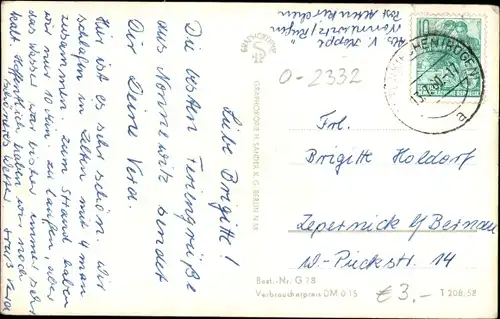 Liebe Brigitte!
Die besten Feriengrüße
aus Nonnewitz sendet
Dir Deine Vera.
Hier ist es sehr schön. Wir
schlafen in Zelten mit 4 man
zusammen. Zum Strand haben
wir nur 10 Min. zu laufen, aber
das Wasser war bisher immer sehr
kalt. Hoffentlich haben wir noch
schöneres Wetter. Gruß Vera
Abs. V. Hoppe
Nonnewitz/Rügen
Post Altenkirchen
10
ALTENKIRCHEN (RÜGEN)
0-2332
Frl.
Brigitte Holdorf
Zepernick b/ Bernau
W.-Pieckstr. 14
GRAPHOKOPIE
GRAPHOKOPIE H. SANDER K. G. BERLIN N 58
Best.-Nr. G 78
Verbraucherpreis DM 0.15
€ 3,-
T 208/58